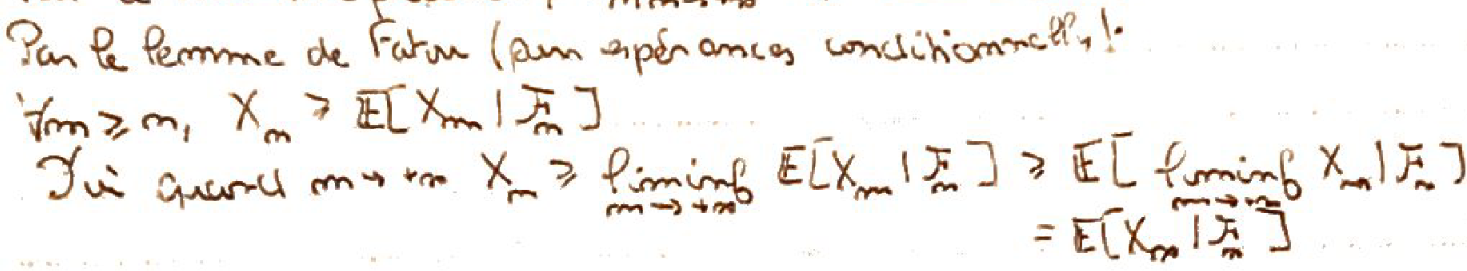 Par le lemme de Fatou (pour espérances conditionnelles):
∀m ≥ n, X_n ≥ 𝔼[X_m | ℱ_n]
D'où quand m → +∞ X_n ≥ liminf_{m→+∞} 𝔼[X_m | ℱ_n] ≥ 𝔼[liminf_{m→+∞} X_m | ℱ_n]
= 𝔼[X_∞ | ℱ_n]